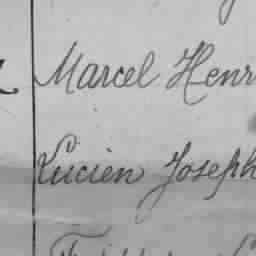 Marcel Henr
Lucien Joseph